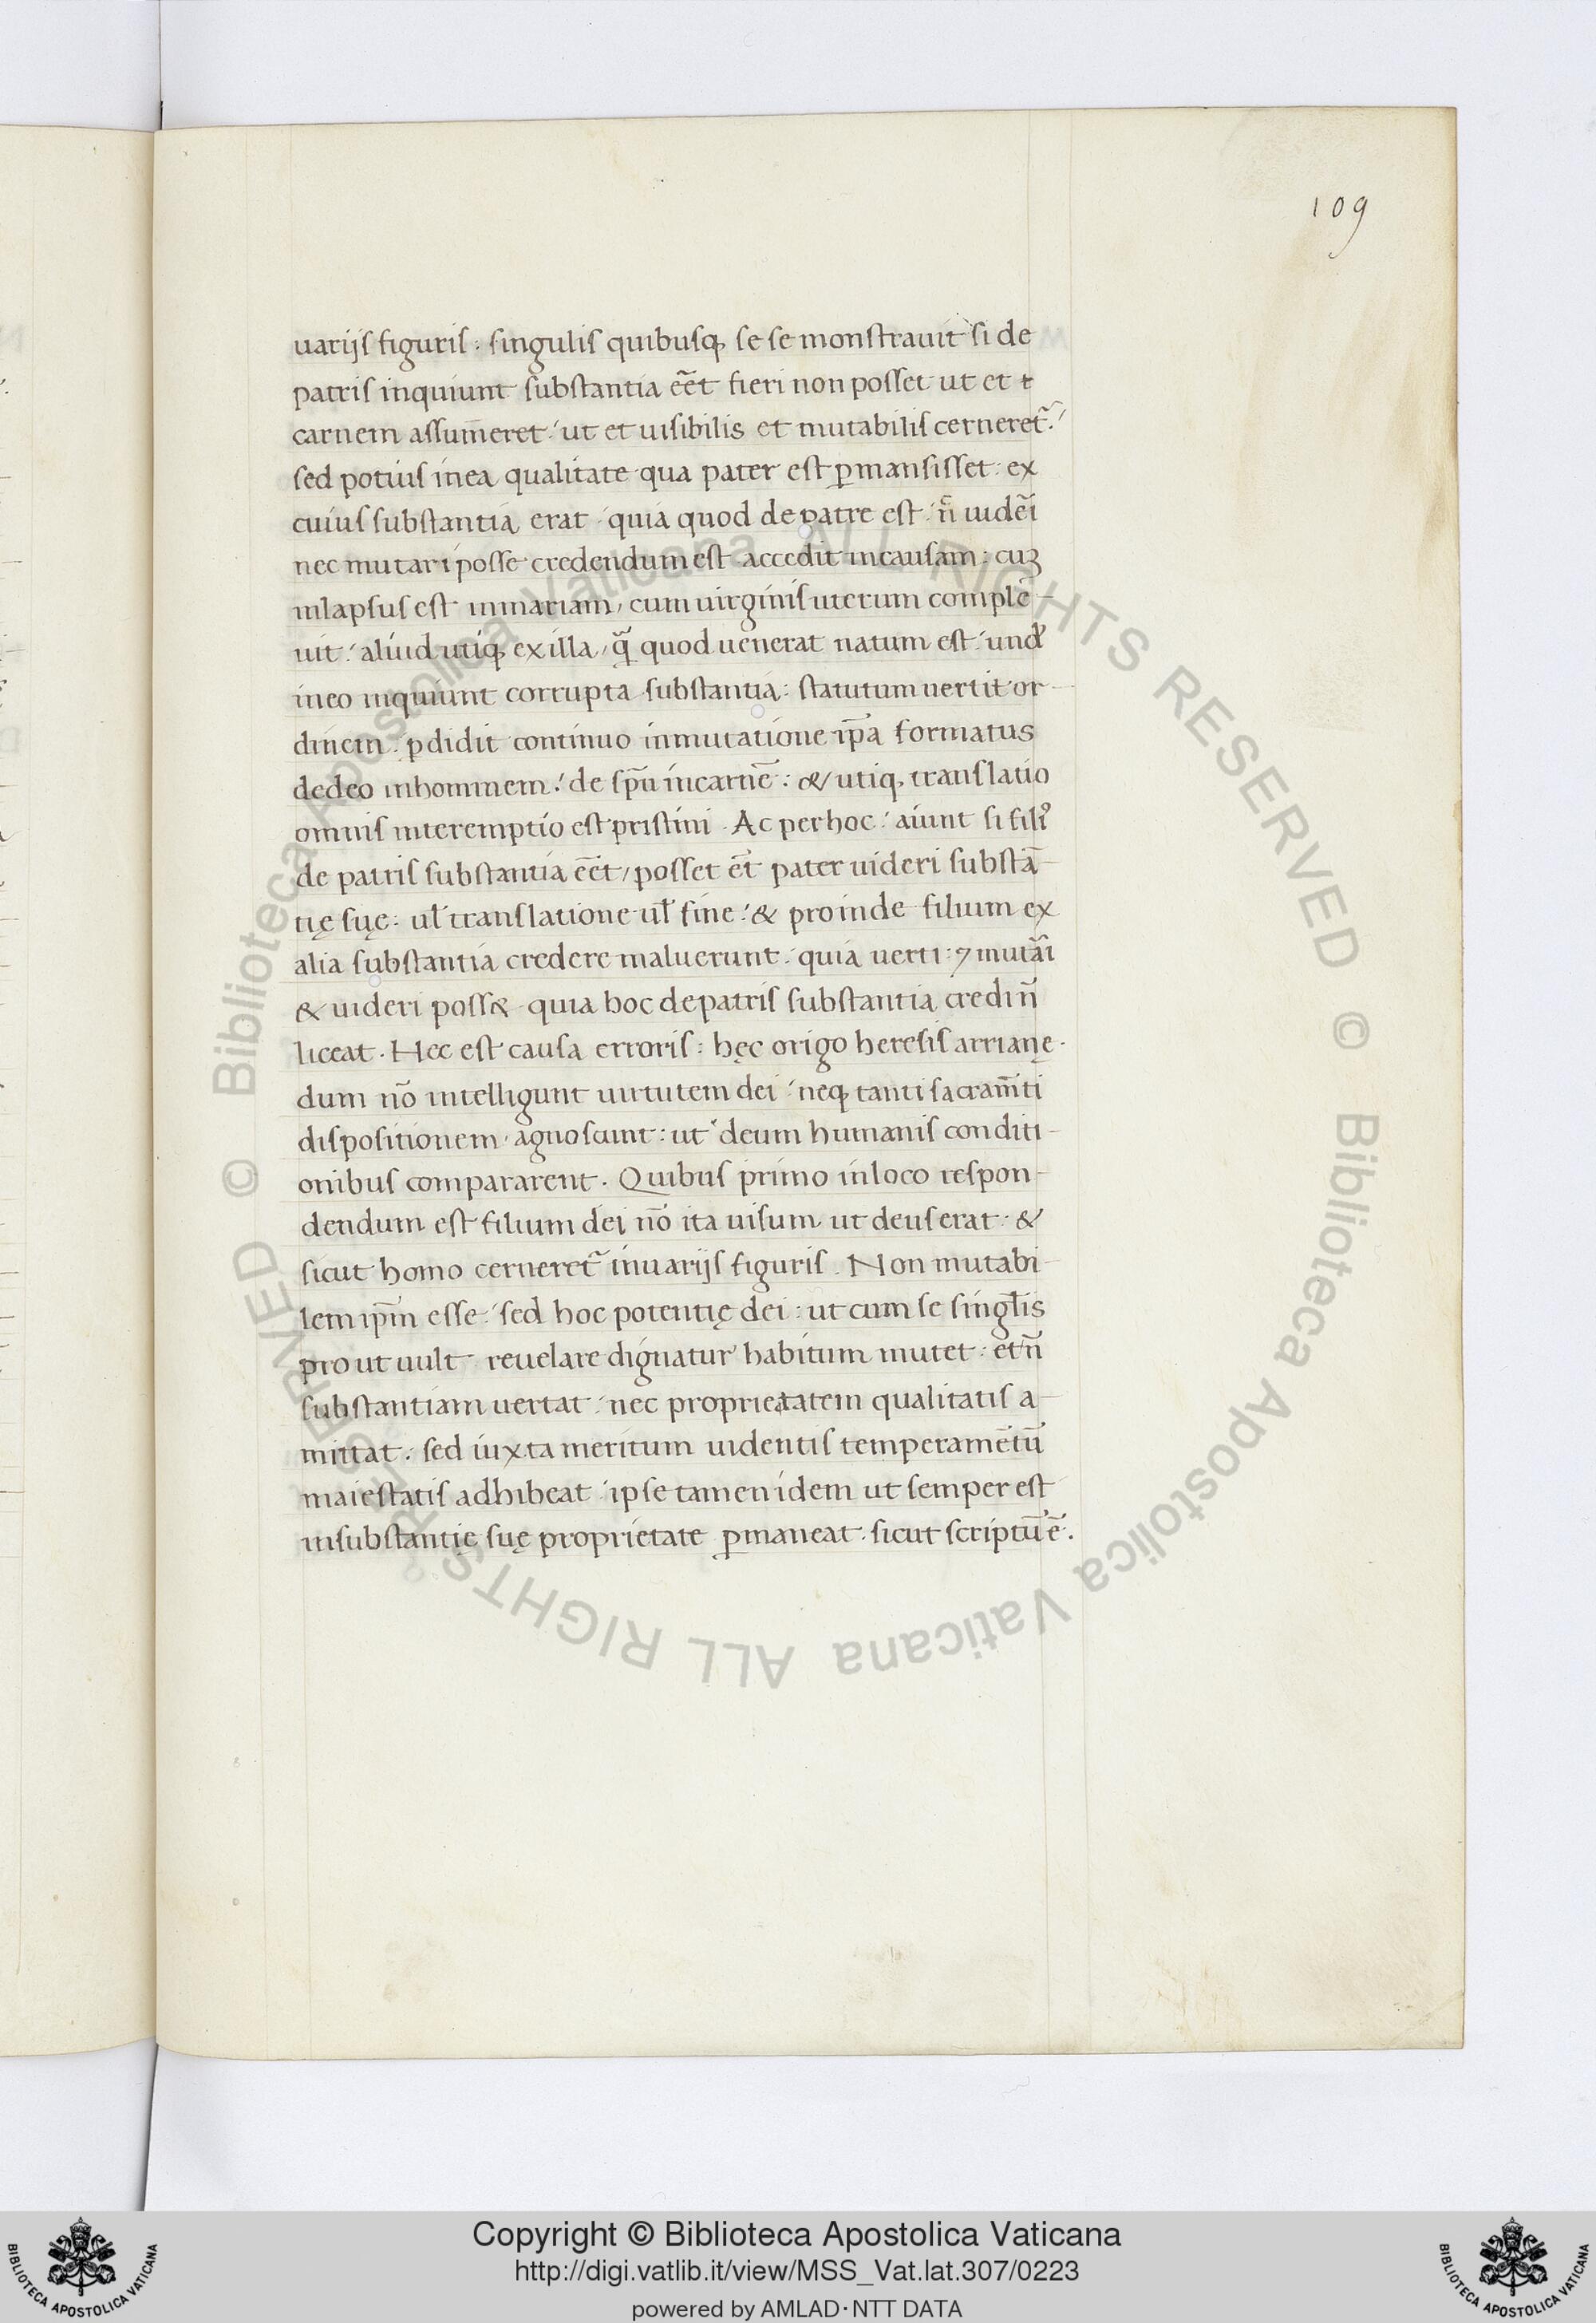 109
uarijs figuris: singulis quibusq; se se monstrauit si de
patris inquiunt substantia eēt fieri non posset ut et t
carnem assum̄eret: ut et uisibilis et mutabilis cerneret᷑:
sed potius inea qualitate qua pater est ꝑmansisset: ex
cuius substantia erat: quia quod de patre est: n̄ uidēi
nec mutari posse credendum est accedit incausam: cuꝫ
inlapsus est inmariam, cum uirginis uterum comple-
uit: aliud utiq; ex illa, quod uenerat natum est: und'
ineo inquiunt corrupta substantia: statutum uertit or-
dinem: pdidit continuo inmutatione ip̄a formatus
dedeo inhominem: de sp̄u incarnē: & utiq; translatio
omnis interemptio est pristini. Ac perhoc: aiunt si fili᷒
de patris substantia eēt, posset ēt pater uideri substā-
tię suę: ul̄ translatione ul̄ fine: & proinde filium ex
alia substantia credere maluerunt: quia uerti: ⁊ mutāi
& uideri poss& quia hoc depatris substantia credi n̄
liceat. Hec est causa erroris: hęc origo heresis arrianę.
dum nō intelligunt uirtutem dei: neq; tanti sacram̄ti
dispositionem agnoscunt: ut deum humanis conditi-
onibus compararent. Quibus primo inloco respon-
dendum est filium dei nō ita uisum ut deus erat: &
sicut homo cerneret᷑ inuarijs figuris. Non mutabi-
lem ip̄m esse: sed hoc potentię dei: ut cum se singl̄is
prout uult reuelare dignatur habitum mutet: et n̄
substantiam uertat: nec proprietatem qualitatis a-
mittat: sed iuxta meritum uidentis temperamētū
maiestatis adhibeat: ipse tamen idem ut semper est
insubstantię suę proprietate ꝑmaneat: sicut scriptū ē.
© Biblioteca Apostolica Vaticana ALL RIGHTS RESERVED © Biblioteca Apostolica Vaticana ALL RIGHTS RESERVED
Copyright © Biblioteca Apostolica Vaticana
http://digi.vatlib.it/view/MSS_Vat.lat.307/0223
powered by AMLAD·NTT DATA
BIBLIOTECA APOSTOLICA VATICANA
BIBLIOTECA APOSTOLICA VATICANA